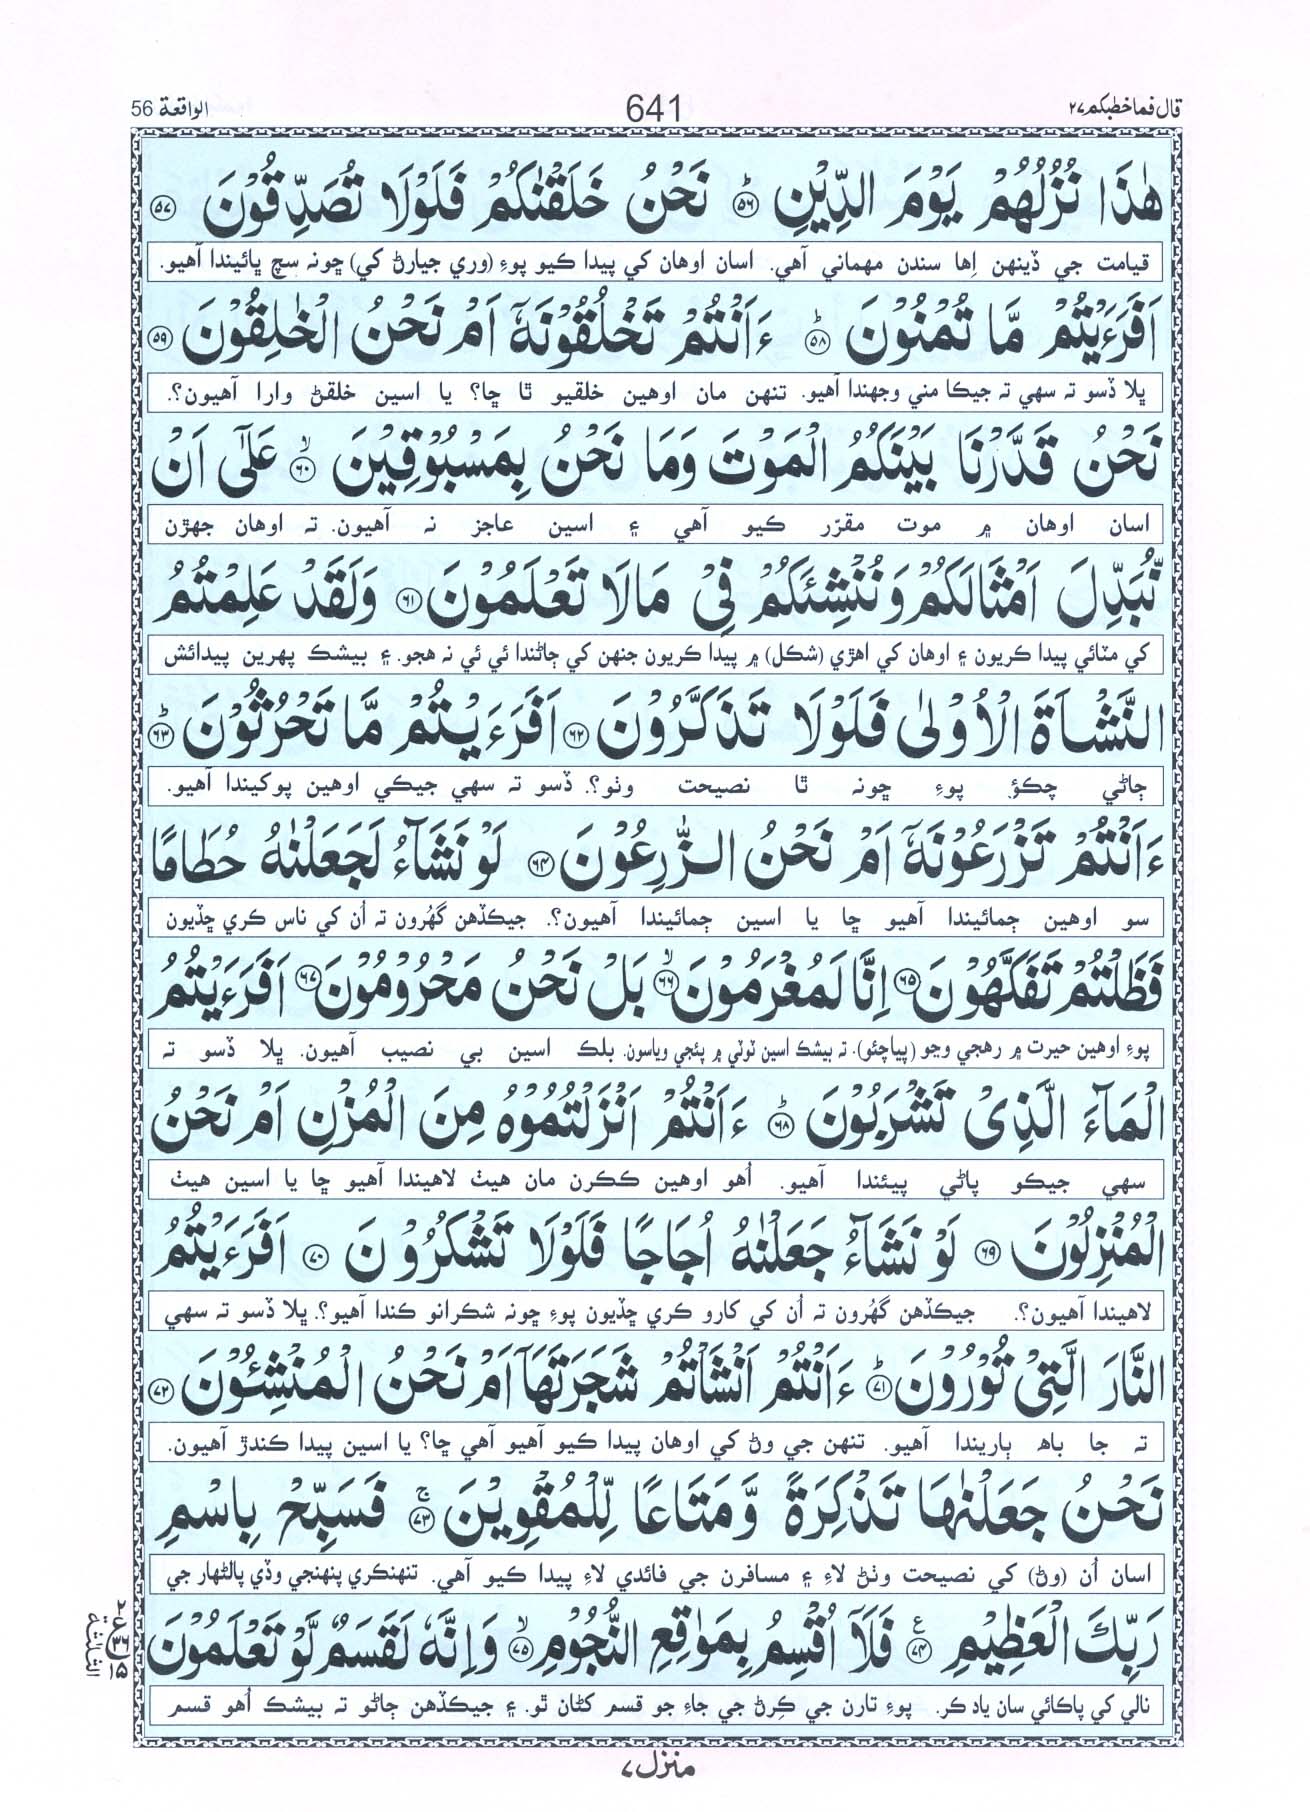 قال فماخطبكم٢٧
641
الواقعة 56
هٰذَا نُزُلُهُمْ يَوْمَ الدِّيْنِ ۝٥٦ؕ نَحْنُ خَلَقْنٰكُمْ فَلَوْلَا تُصَدِّقُوْنَ ۝٥٧
قيامت جي ڏينهن اِها سندن مهماني آهي. اسان اوهان کي پيدا ڪيو پوءِ (وري جيارڻ کي) ڇونہ سچ ڀائيندا آهيو.
اَفَرَءَيْتُمْ مَّا تُمْنُوْنَ ۝٥٨ؕ ءَاَنْتُمْ تَخْلُقُوْنَهٗٓ اَمْ نَحْنُ الْخٰلِقُوْنَ ۝٥٩
ڀلا ڏسو تہ سهي تہ جيڪا مني وجهندا آهيو. تنهن مان اوهين خلقيو ٿا ڇا؟ يا اسين خلقڻ وارا آهيون؟.
نَحْنُ قَدَّرْنَا بَيْنَكُمُ الْمَوْتَ وَمَا نَحْنُ بِمَسْبُوْقِيْنَ ۝٦٠ۙ عَلٰٓى اَنْ
اسان اوهان ۾ موت مقرّر ڪيو آهي ۽ اسين عاجز نہ آهيون. تہ اوهان جهڙن
نُّبَدِّلَ اَمْثَالَكُمْ وَنُنْشِئَكُمْ فِيْ مَالَا تَعْلَمُوْنَ ۝٦١ وَلَقَدْ عَلِمْتُمُ
کي مٽائي پيدا ڪريون ۽ اوهان کي اهڙي (شڪل) ۾ پيدا ڪريون جنهن کي ڄاڻندا ئي ئي نہ هجو. ۽ بيشڪ پهرين پيدائش
النَّشْاَةَ الْاُوْلٰى فَلَوْلَا تَذَكَّرُوْنَ ۝٦٢ اَفَرَءَيْتُمْ مَّا تَحْرُثُوْنَ ۝٦٣ؕ
ڄاڻي چڪؤ پوءِ ڇونہ ٿا نصيحت وٺو؟. ڏسو تہ سهي جيڪي اوهين پوکيندا آهيو.
ءَاَنْتُمْ تَزْرَعُوْنَهٗٓ اَمْ نَحْنُ الزّٰرِعُوْنَ ۝٦٤ لَوْ نَشَآءُ لَجَعَلْنٰهُ حُطَامًا
سو اوهين ڄمائيندا آهيو ڇا يا اسين ڄمائيندا آهيون؟. جيڪڏهن گهُرون تہ اُن کي ناس ڪري ڇڏيون
فَظَلْتُمْ تَفَكَّهُوْنَ ۝٦٥ اِنَّا لَمُغْرَمُوْنَ ۝٦٦ۙ بَلْ نَحْنُ مَحْرُوْمُوْنَ ۝٦٧ اَفَرَءَيْتُمُ
پوءِ اوهين حيرت ۾ رهجي وڃو (پياچئو). تہ بيشڪ اسين ٽوٽي ۾ پئجي وياسون. بلڪ اسين بي نصيب آهيون. ڀلا ڏسو تہ
الْمَآءَ الَّذِيْ تَشْرَبُوْنَ ۝٦٨ؕ ءَاَنْتُمْ اَنْزَلْتُمُوْهُ مِنَ الْمُزْنِ اَمْ نَحْنُ
سهي جيڪو پاڻي پيئندا آهيو. اُهو اوهين ڪڪرن مان هيٺ لاهيندا آهيو ڇا يا اسين هيٺ
الْمُنْزِلُوْنَ ۝٦٩ لَوْ نَشَآءُ جَعَلْنٰهُ اُجَاجًا فَلَوْلَا تَشْكُرُوْنَ ۝٧٠ اَفَرَءَيْتُمُ
لاهيندا آهيون؟. جيڪڏهن گهُرون تہ اُن کي کارو ڪري ڇڏيون پوءِ ڇونہ شڪرانو ڪندا آهيو؟. ڀلا ڏسو تہ سهي
النَّارَ الَّتِيْ تُوْرُوْنَ ۝٧١ؕ ءَاَنْتُمْ اَنْشَاْتُمْ شَجَرَتَهَآ اَمْ نَحْنُ الْمُنْشِـُٔوْنَ ۝٧٢
تہ جا باھ ٻاريندا آهيو. تنهن جي وڻ کي اوهان پيدا ڪيو آهيو آهي ڇا؟ يا اسين پيدا ڪندڙ آهيون.
نَحْنُ جَعَلْنٰهَا تَذْكِرَةً وَّمَتَاعًا لِّلْمُقْوِيْنَ ۝٧٣ۚ فَسَبِّحْ بِاسْمِ
اسان اُن (وڻ) کي نصيحت وٺڻ لاءِ ۽ مسافرن جي فائدي لاءِ پيدا ڪيو آهي. تنهنڪري پنهنجي وڏي پالڻهار جي
رَبِّكَ الْعَظِيْمِ ۝٧٤ع فَلَآ اُقْسِمُ بِمَوٰقِعِ النُّجُوْمِ ۝٧٥ۙ وَاِنَّهٗ لَقَسَمٌ لَّوْ تَعْلَمُوْنَ
نالي کي پاڪائي سان ياد ڪر. پوءِ تارن جي ڪِرڻ جي جاءِ جو قسم کڻان ٿو. ۽ جيڪڏهن ڄاڻو تہ بيشڪ اُهو قسم
منزل٧